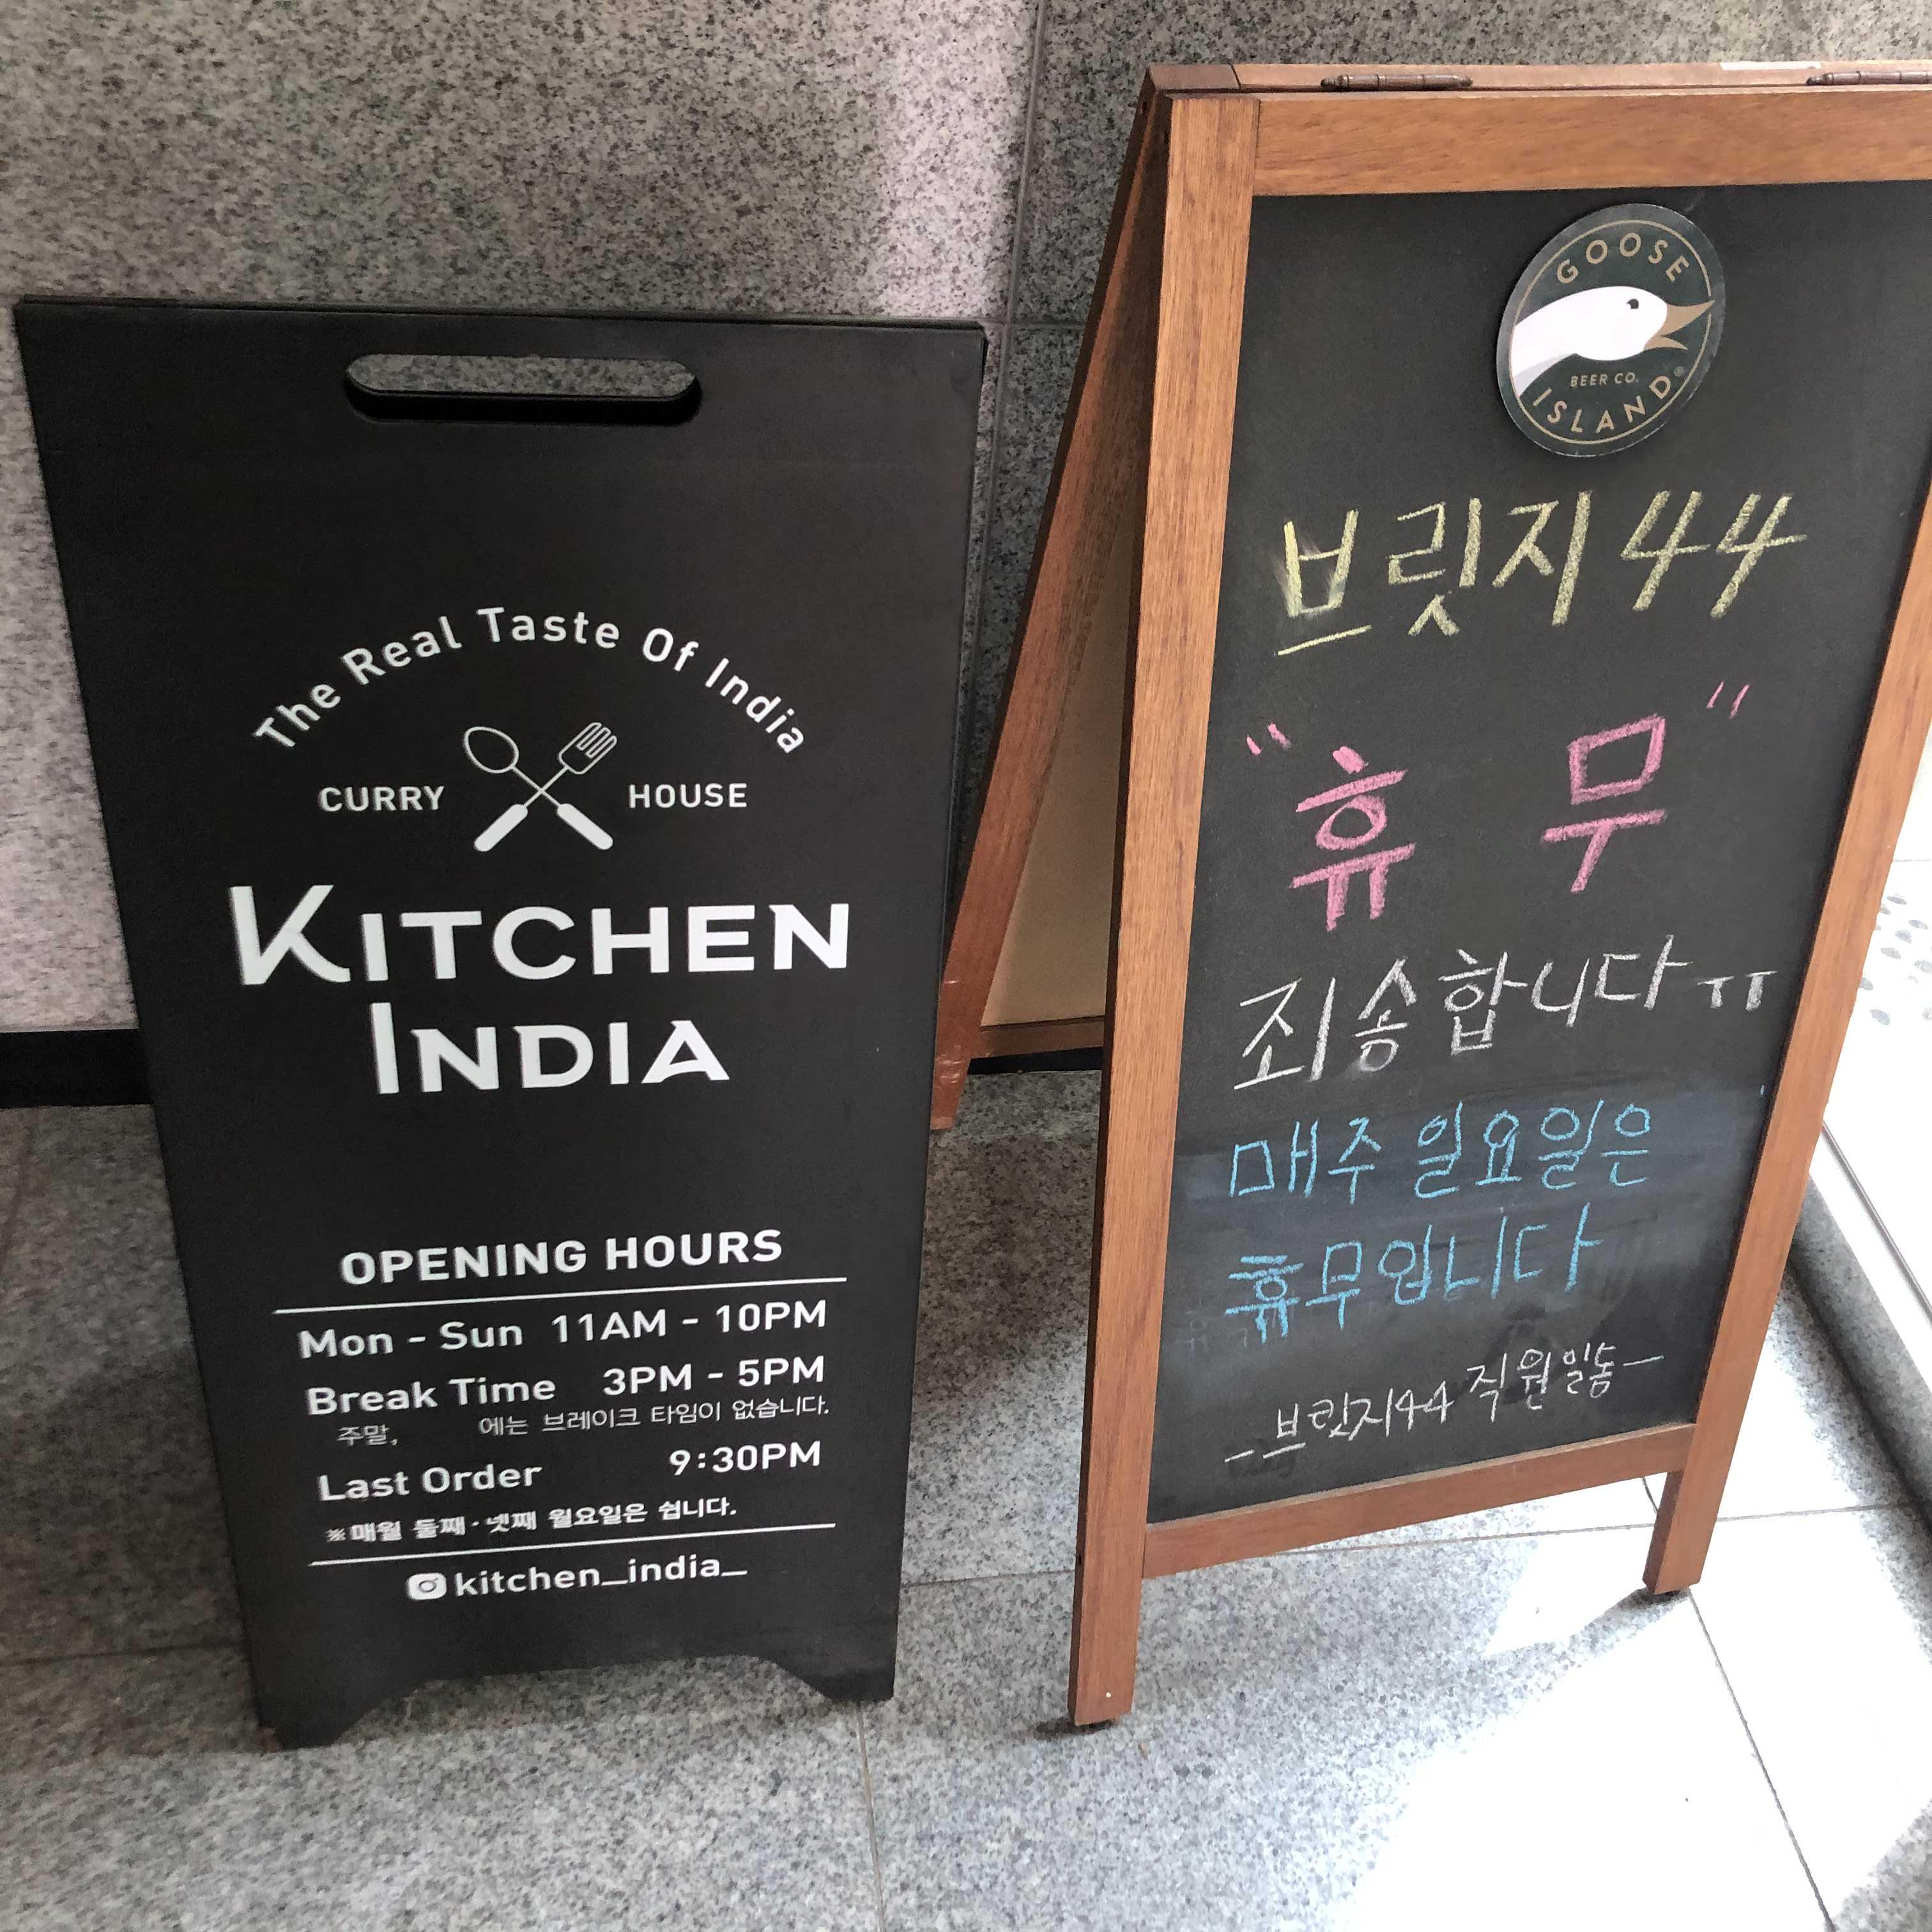 The Real Taste Of India
CURRY HOUSE
KITCHEN
INDIA
OPENING HOURS
Mon - Sun 11AM - 10PM
Break Time 3PM - 5PM
주말, 에는 브레이크 타임이 없습니다.
Last Order 9:30PM
※매월 둘째·넷째 월요일은 쉽니다.
kitchen_india_
GOOSE
BEER CO.
ISLAND®
브릿지44
"휴 무"
죄송합니다ㅠ
매주 일요일은
휴무입니다
-브릿지44 직원일동-